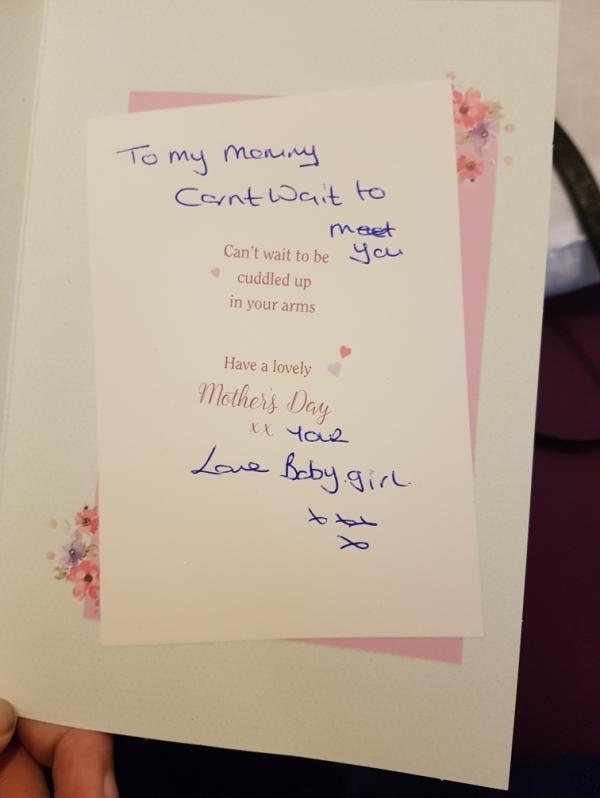 To my Mommy
Carnt Wait to
meet
you
Can't wait to be
cuddled up
in your arms
Have a lovely
Mother's Day
xx your
Love Baby.girl.
x xx
x